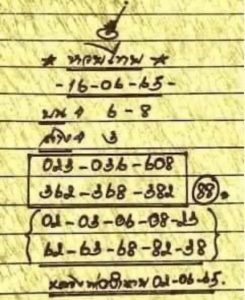 * หวยไทย *
-16-06-65-
บน 4 6-8
ล่าง 4 3
023-036-608
362-368-382 88.
02-03-06-08-23
62-63-68-82-38
02-06-65.